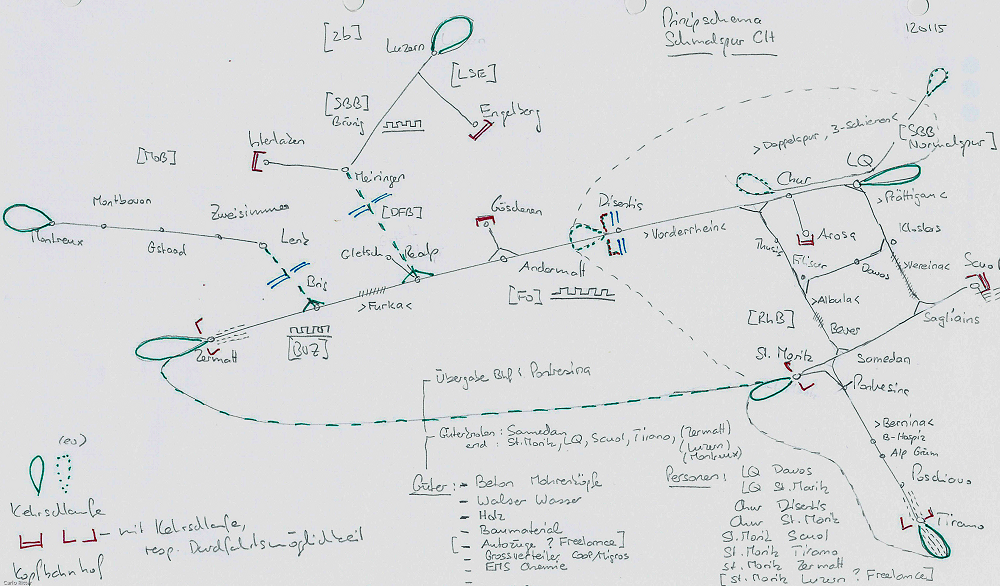 Prinzipschema
Schmalspur CH
120115
[zb]
Luzern
[LSE]
[SBB]
Brünig
Engelberg
Interlaken
[MOB]
Meiringen
[DFB]
Montreux
Montbovon
Gstaad
Zweisimmen
Lenk
Brig
Gletsch
Realp
Göschenen
Andermatt
>Furka<
[FO]
[BVZ]
Zermatt
Disentis
>Vorderrhein<
>Doppelspur, 3-Schienen<
[SBB
Normalspur]
LQ
Chur
>Prättigau<
Arosa
Klosters
Thusis
Filisur
Davos
>Vereina<
Scuol
>Albula<
Sagliains
[RhB]
Bever
St. Moritz
Samedan
Pontresina
>Bernina<
B-Hospiz
Alp Grüm
Poschiavo
Tirano
Übergabe Bhf: Pontresina
Güterknoten: Samedan
end: St. Moritz, LQ, Scuol, Tirano, (Zermatt)
(Luzern)
(Montreux)
Güter: - Beton Mohrenköpfe
- Walser Wasser
- Holz
- Baumaterial
[- Autozüge ? Freelance]
- Grossverteiler Coop/Migros
- EMS Chemie
Personen: LQ Davos
LQ St. Moritz
Chur Disentis
Chur St. Moritz
St. Moritz Scuol
St. Moritz Tirano
St. Moritz Zermatt
[St. Moritz Luzern ? Freelance]
(ev)
Kehrschlaufe
- mit Kehrschlaufe,
resp. Durchfahrtsmöglichkeit
Kopfbahnhof